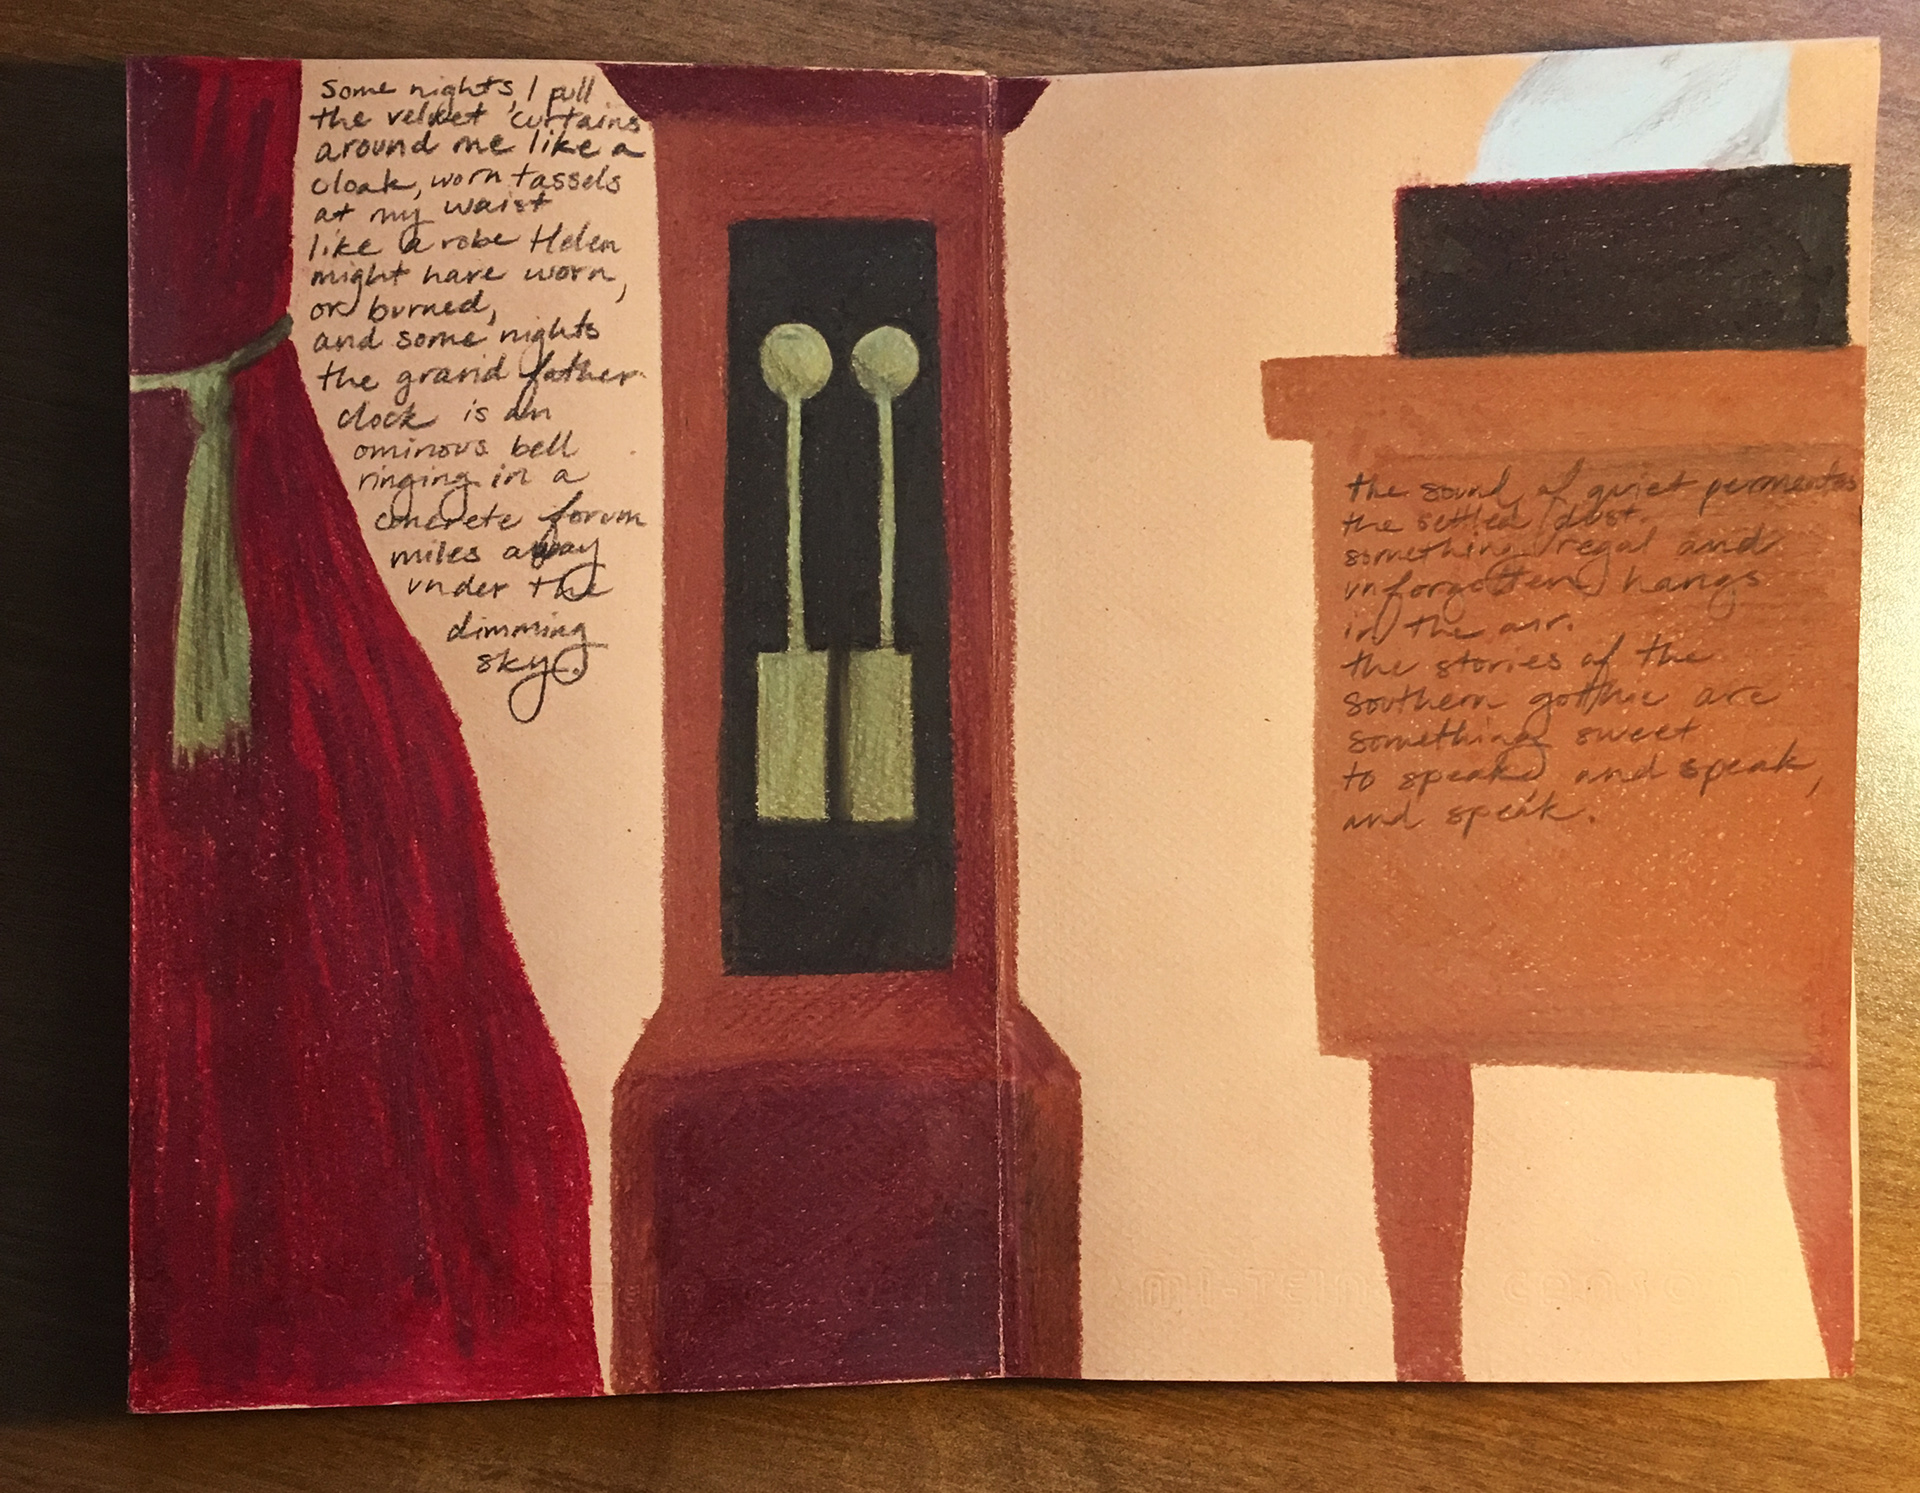 some nights, I pull
the velvet curtains
around me like a
cloak, worn tassels
at my waist
like a robe Helen
might have worn,
or burned,
and some nights
the grandfather
clock is an
ominous bell
ringing in a
concrete forum
miles away
under the
dimming
sky.
the sound of quiet permeates
the settled dust.
something regal and
unforgotten hangs
in the air.
the stories of the
southern gothic are
something sweet
to speak and speak,
and speak.
MI-TEINTES CANSON